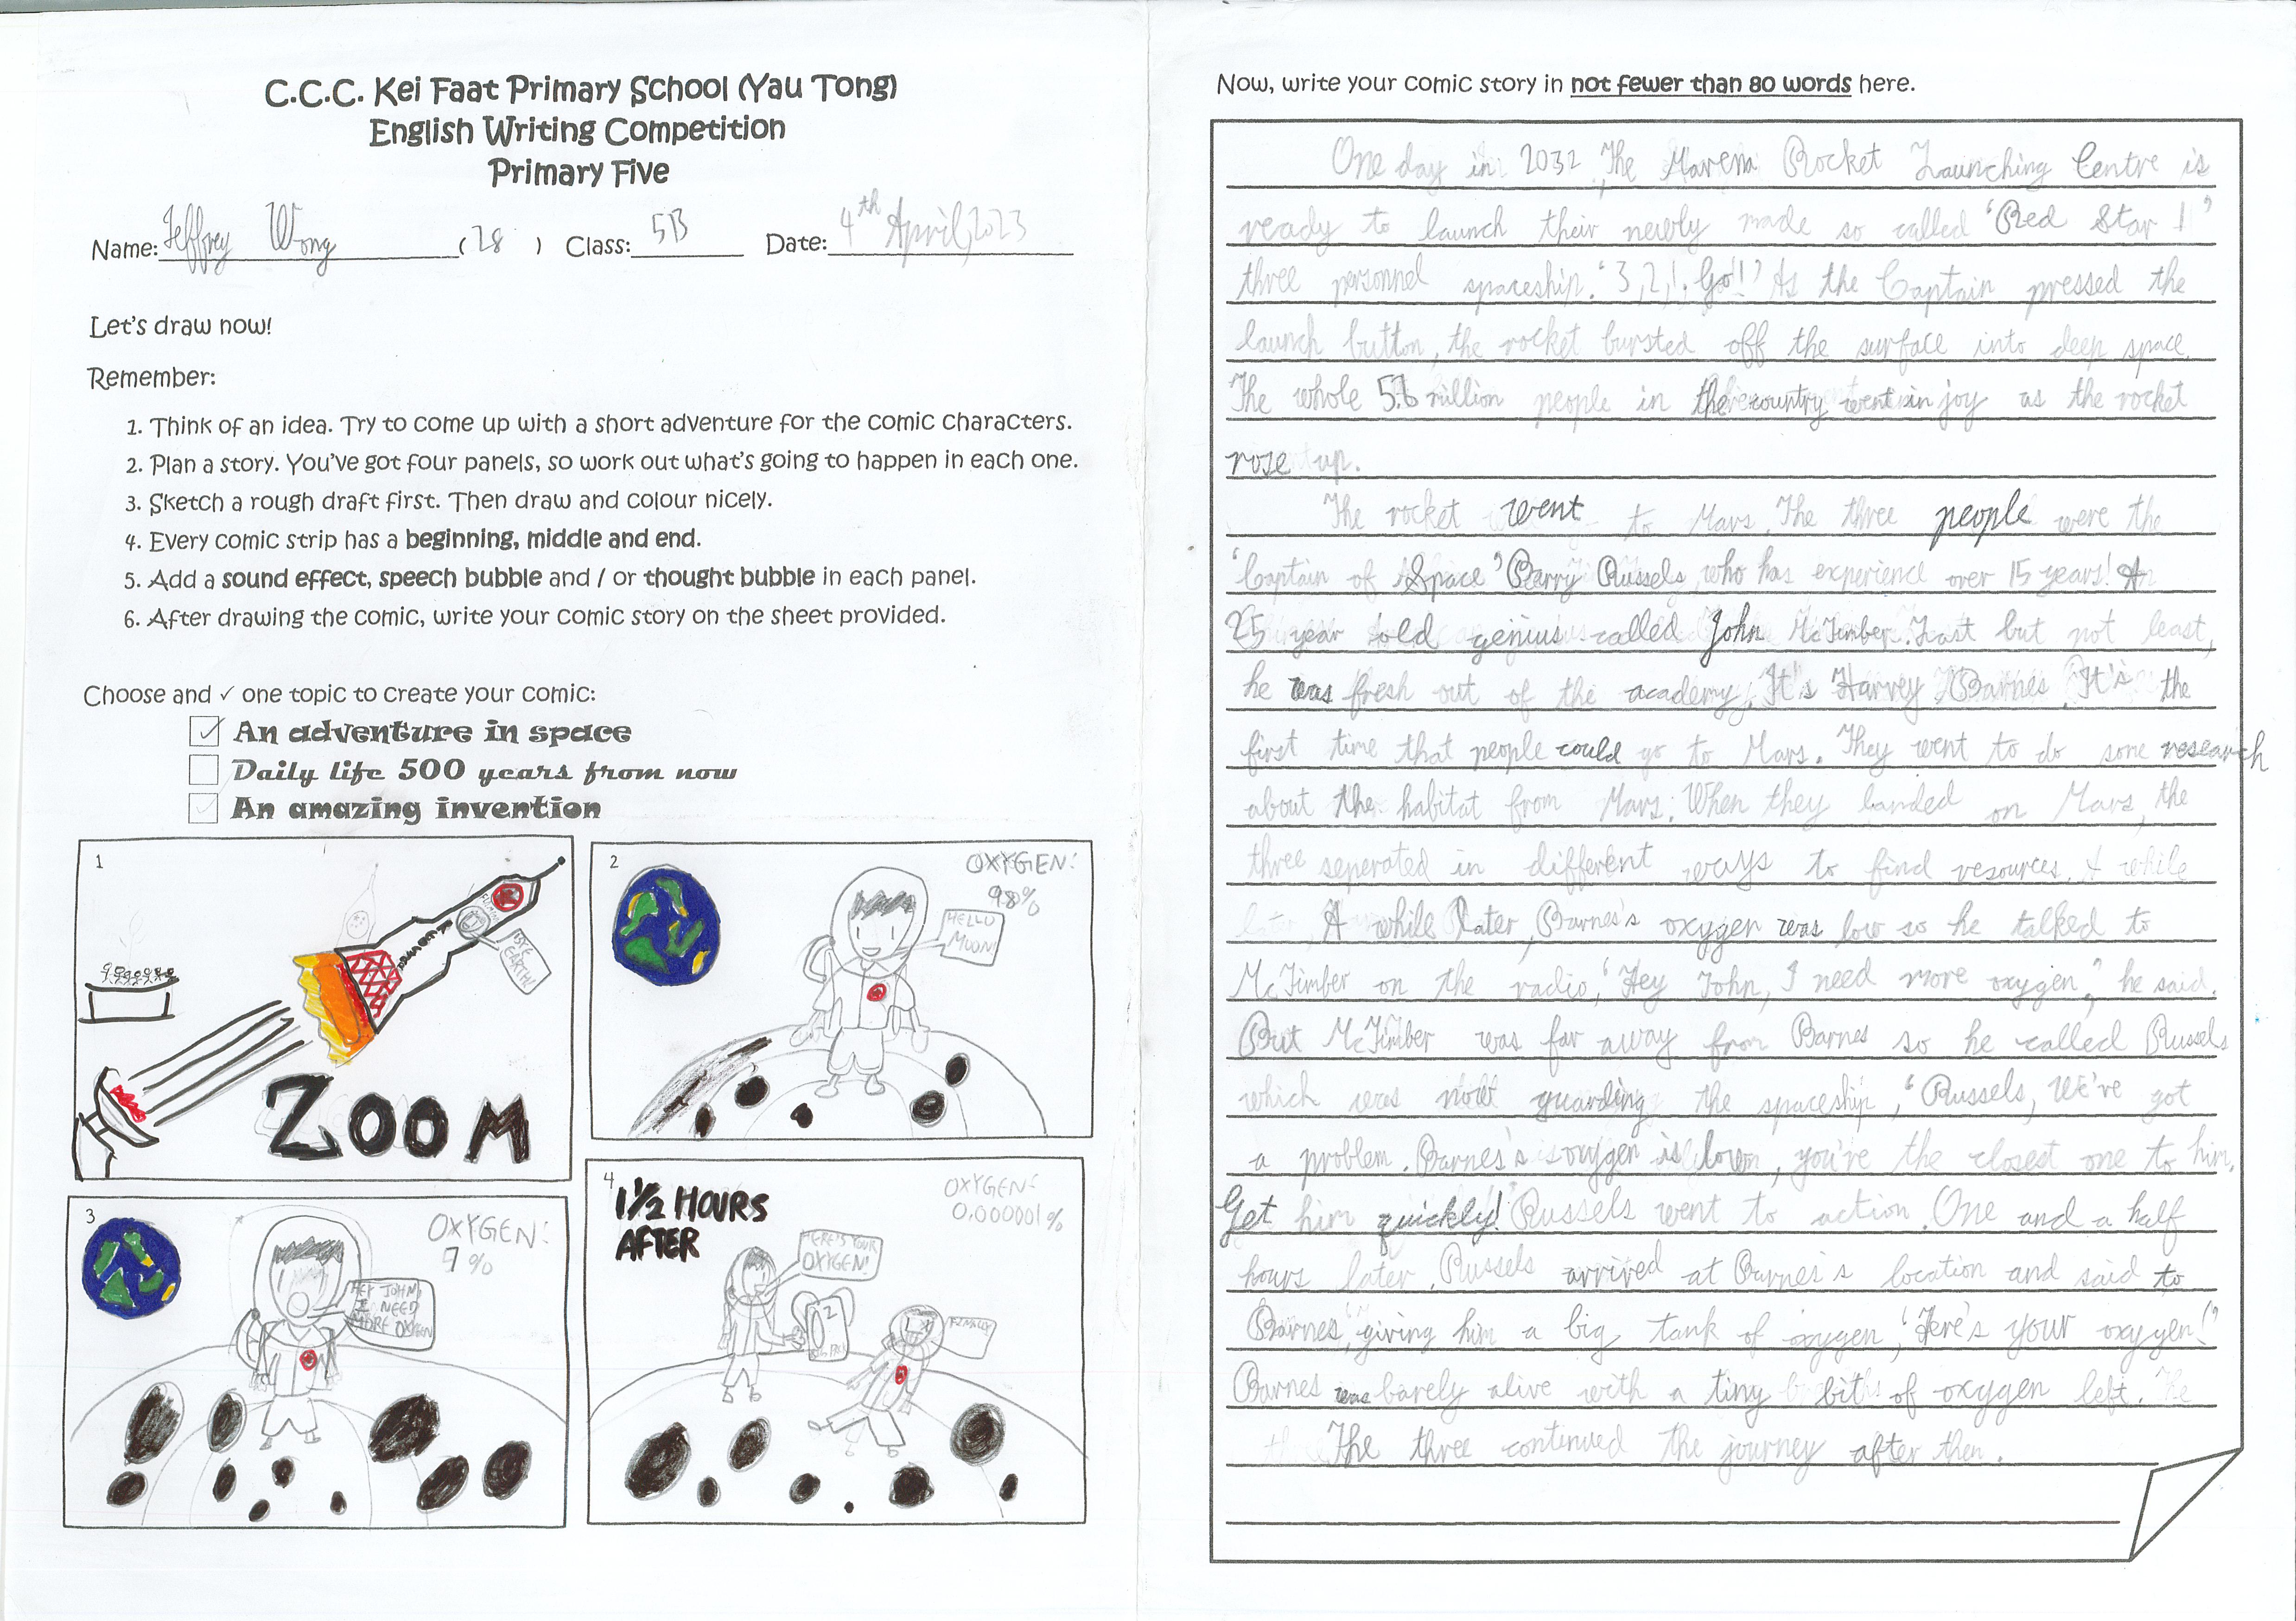 C.C.C. Kei Faat Primary School (Yau Tong)
English Writing Competition
Primary Five
Name: Jeffrey Wong (28) Class: 5B Date: 4th April, 2023
Let's draw now!
Remember:
1. Think of an idea. Try to come up with a short adventure for the comic characters.
2. Plan a story. You've got four panels, so work out what's going to happen in each one.
3. Sketch a rough draft first. Then draw and colour nicely.
4. Every comic strip has a beginning, middle and end.
5. Add a sound effect, speech bubble and / or thought bubble in each panel.
6. After drawing the comic, write your comic story on the sheet provided.
Choose and ✓ one topic to create your comic:
✓ An adventure in space
Daily life 500 years from now
An amazing invention
1
BYE EARTH!
ZOOM
2
OXYGEN:
98%
HELLO
MOON!
3
OXYGEN:
7%
HEY JOHN,
I NEED
MORE OXYGEN
4
1 1/2 HOURS
AFTER
OXYGEN:
0.000001%
HERE'S YOUR
OXYGEN!
O2
FINALLY
Now, write your comic story in not fewer than 80 words here.
One day in 2032, The Marena Rocket Launching Centre is
ready to launch their newly made so called 'Red Star 1'
three personnel spaceship. '3,2,1, Go!!' As the Captain pressed the
launch button, the rocket bursted off the surface into deep space.
The whole 5.6 million people in the country went in joy as the rocket
rose up.
The rocket went to Mars. The three people were the
'Captain of Space' Barry Russels, who has experience over 15 years! A
25 year old genius called John McTimber. Last but not least,
he was fresh out of the academy. It's Harvey Barnes. It's the
first time that people could go to Mars. They went to do some research
about the habitat from Mars. When they landed on Mars, the
three seperated in different ways to find resources.
A while later, Barnes's oxygen was low so he talked to
McTimber on the radio, 'Hey John, I need more oxygen,' he said.
But McTimber was far away from Barnes so he called Russels
which was now guarding the spaceship, 'Russels, We've got
a problem. Barnes's oxygen is low, you're the closest one to him.
Get him quickly!' Russels went to action. One and a half
hours later, Russels arrived at Barnes's location and said to
Barnes, giving him a big tank of oxygen, 'Here's your oxygen!'
Barnes was barely alive with a tiny bit of oxygen left.
The three continued the journey after then.